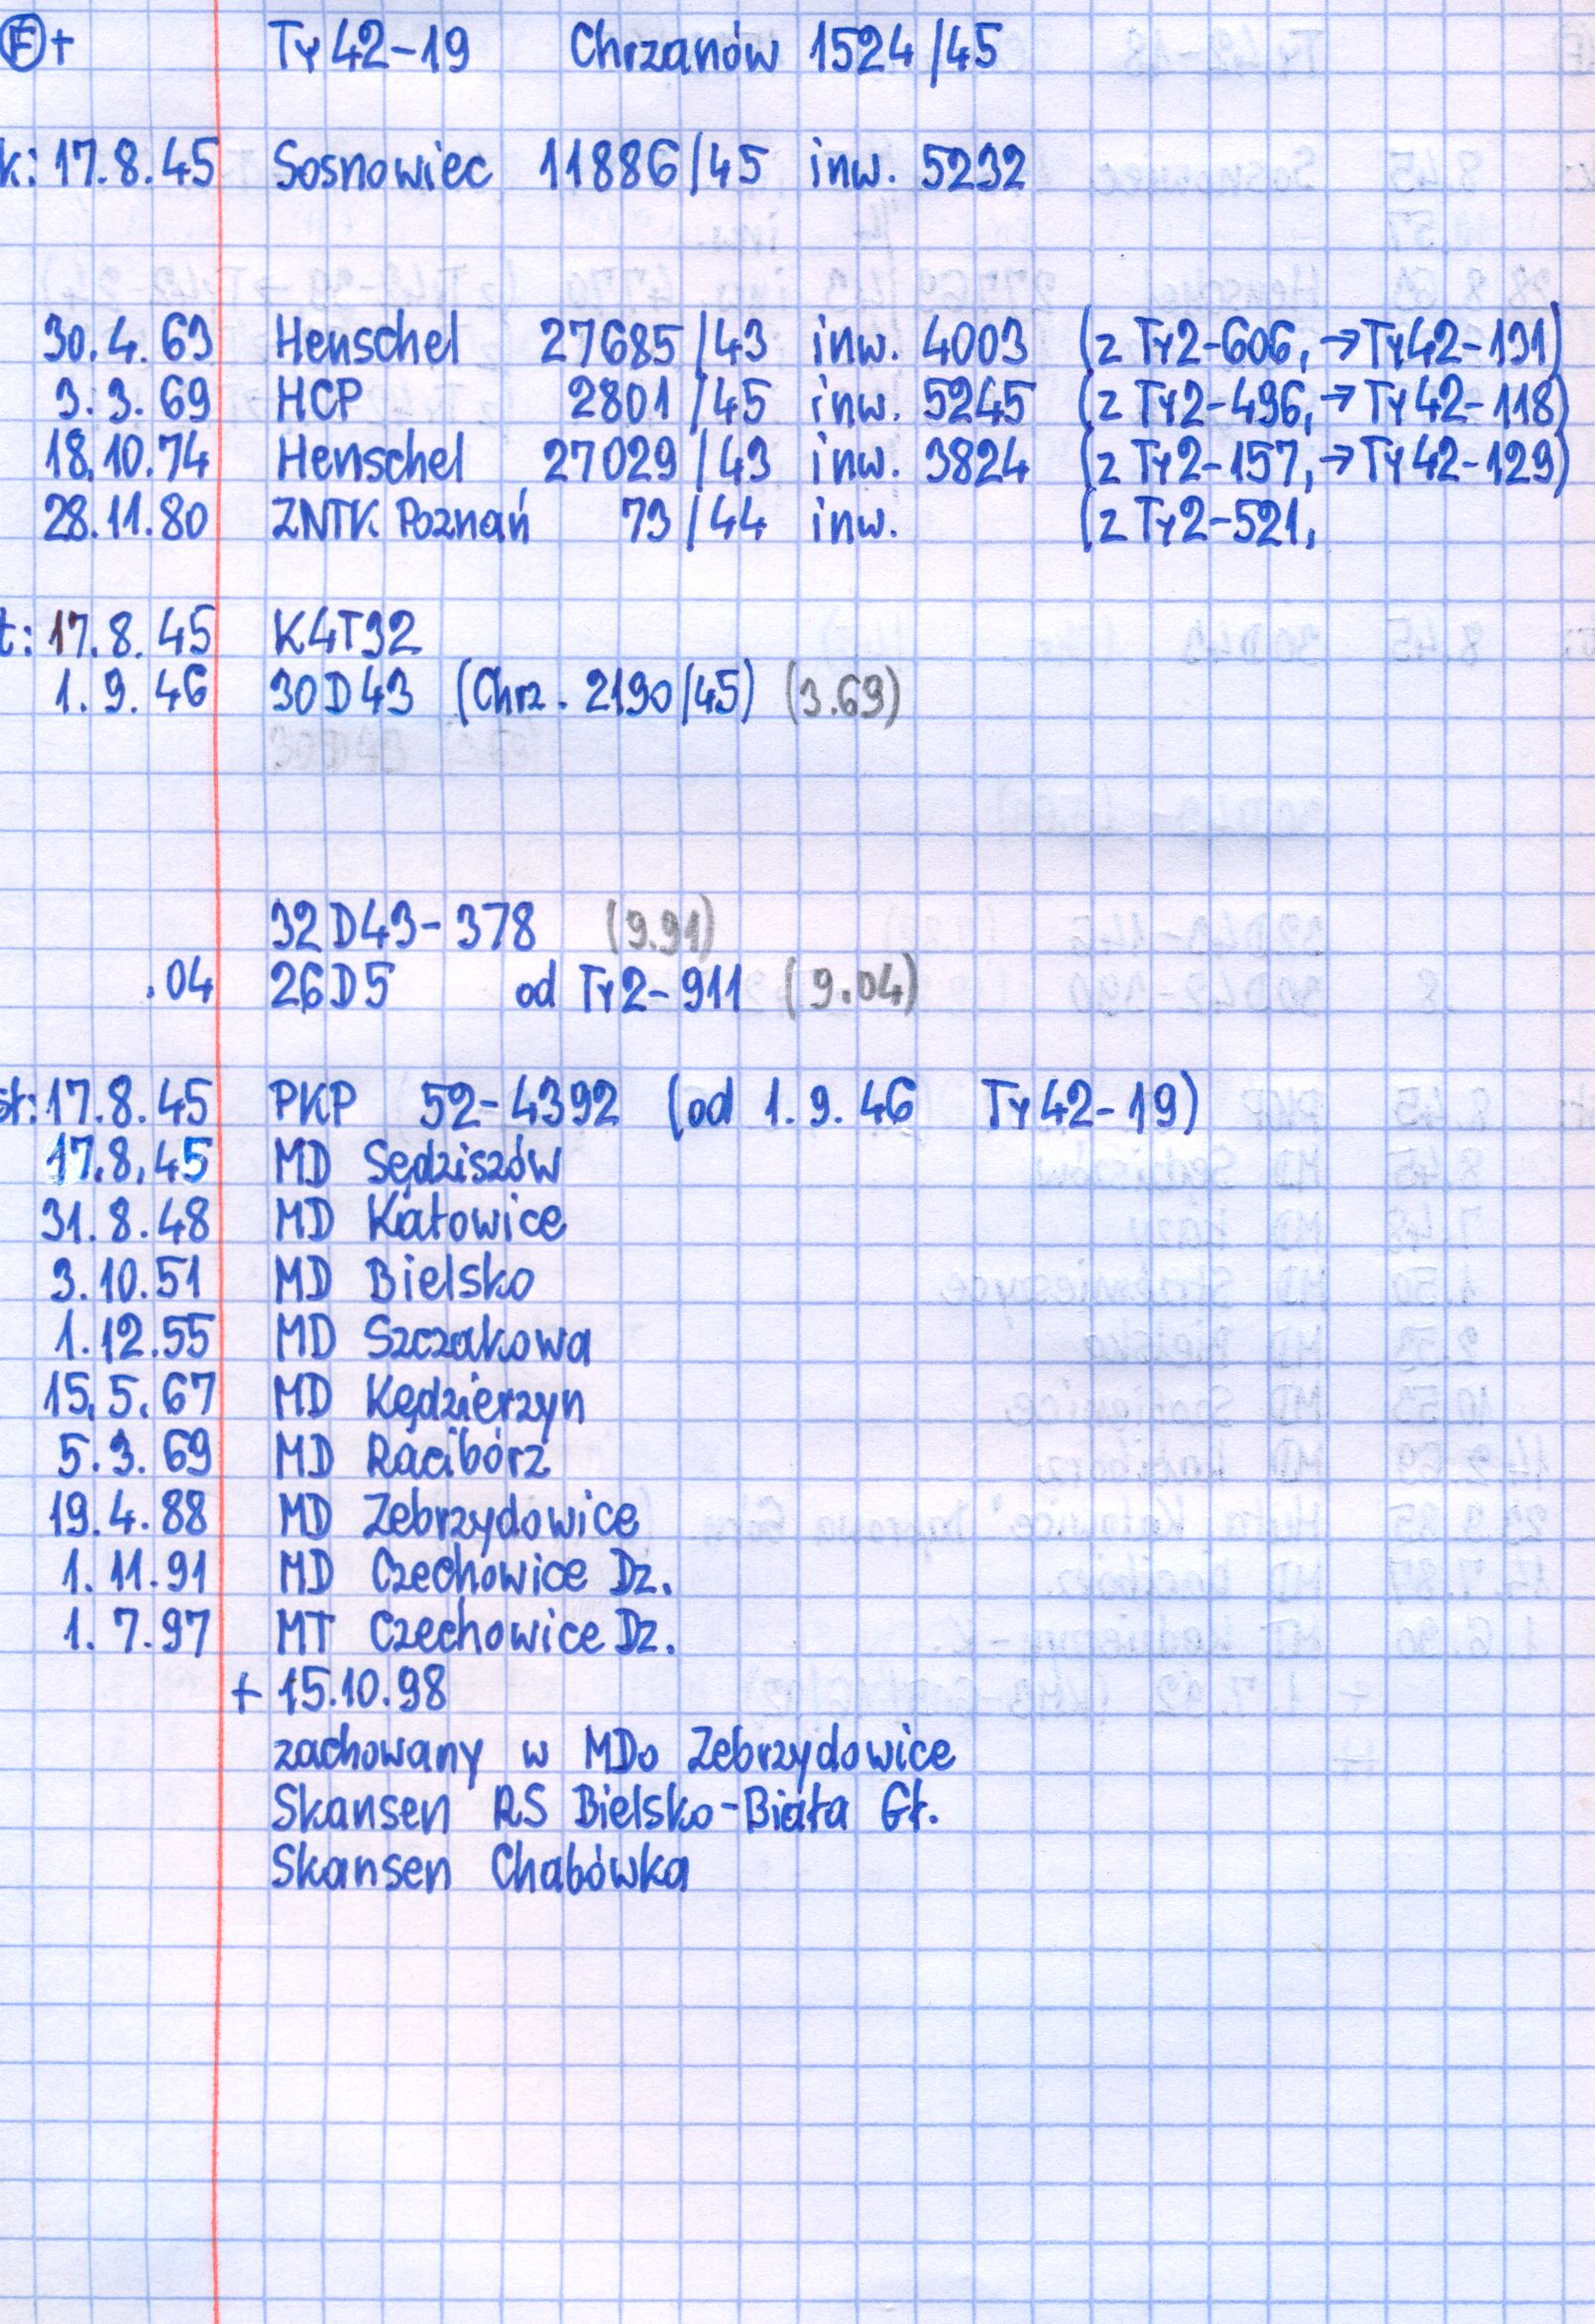 Ⓕ+ Ty42-19 Chrzanów 1524/45
k: 17.8.45 Sosnowiec 11886/45 inw. 5232
30.4.63 Henschel 27685/43 inw. 4003 (z Ty2-606, →Ty42-131)
3.3.69 HCP 2801/45 inw. 5245 (z Ty2-496, →Ty42-118)
18.10.74 Henschel 27029/43 inw. 3824 (z Ty2-157, →Ty42-129)
28.11.80 ZNTK Poznań 73/44 inw. (z Ty2-521,
t: 17.8.45 K4T32
1.9.46 30D43 (Chrz. 2190/45) (3.69)
32D43-378 (9.91)
.04 26D5 od Ty2-911 (9.04)
st: 17.8.45 PKP 52-4392 (od 1.9.46 Ty42-19)
17.8.45 MD Sędziszów
31.8.48 MD Katowice
3.10.51 MD Bielsko
1.12.55 MD Szczakowa
15.5.67 MD Kędzierzyn
5.3.69 MD Racibórz
19.4.88 MD Zebrzydowice
1.11.91 MD Czechowice Dz.
1.7.97 MT Czechowice Dz.
+ 15.10.98
zachowany w MDo Zebrzydowice
Skansen RS Bielsko-Biała Gł.
Skansen Chabówka